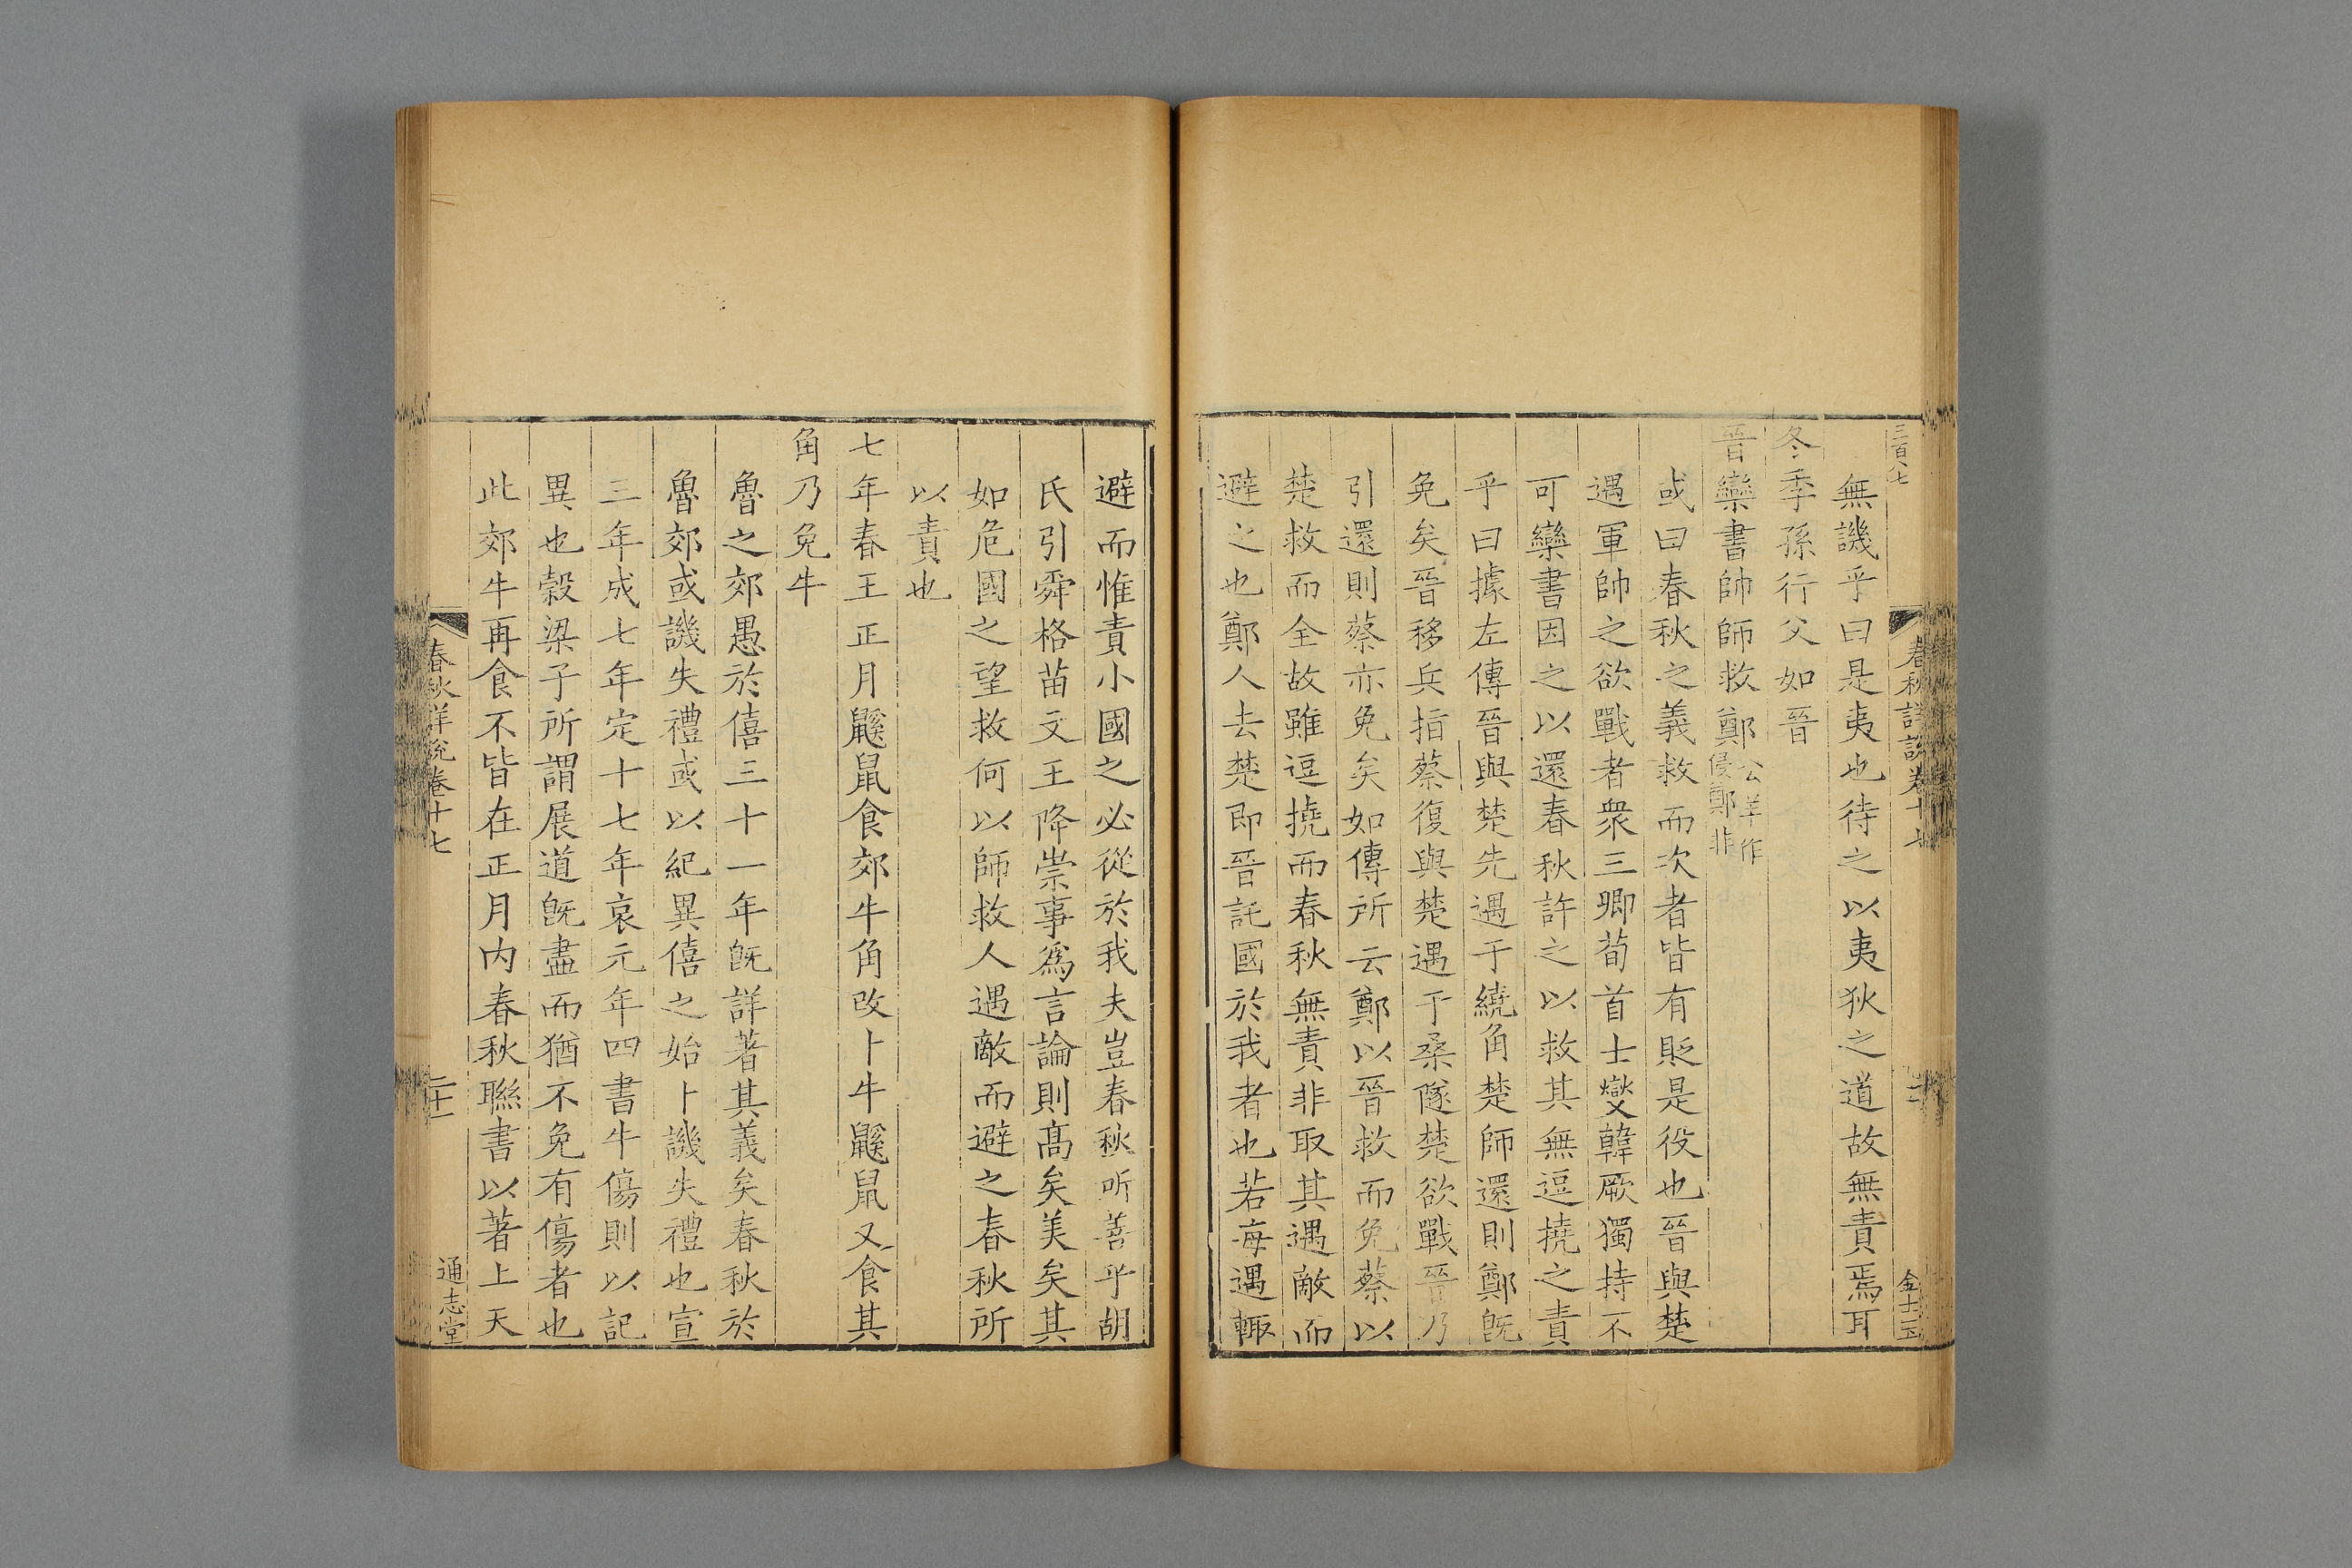 三百八七
春秋詳說卷十七
金士玉
無譏乎曰是夷也待之以夷狄之道故無責焉耳
冬季孫行父如晉
晉欒書帥師救鄭公羊作侵鄭非
或曰春秋之義救而次者皆有貶是役也晉與楚
遇軍帥之欲戰者衆三卿荀首士燮韓厥獨持不
可欒書因之以還春秋許之以救其無逗撓之責
乎曰據左傳晉與楚先遇于繞角楚師還則鄭旣
免矣晉移兵指蔡復與楚遇于桑隧楚欲戰晉乃
引還則蔡亦免矣如傳所云鄭以晉救而免蔡以
楚救而全故雖逗撓而春秋無責非取其遇敵而
避之也鄭人去楚即晉託國於我者也若每遇輙
避而惟責小國之必從於我夫豈春秋所善乎胡
氏引舜格苗文王降崇事爲言論則髙矣美矣其
如危國之望救何以師救人遇敵而避之春秋所
以責也
七年春王正月鼷鼠食郊牛角改卜牛鼷鼠又食其
角乃免牛
魯之郊愚於僖三十一年旣詳著其義矣春秋於
魯郊或譏失禮或以紀異僖之始卜譏失禮也宣
三年成七年定十七年哀元年四書牛傷則以記
異也穀梁子所謂展道旣盡而猶不免有傷者也
此郊牛再食不皆在正月内春秋聮書以著上天
春秋詳說卷十七
二十二
通志堂